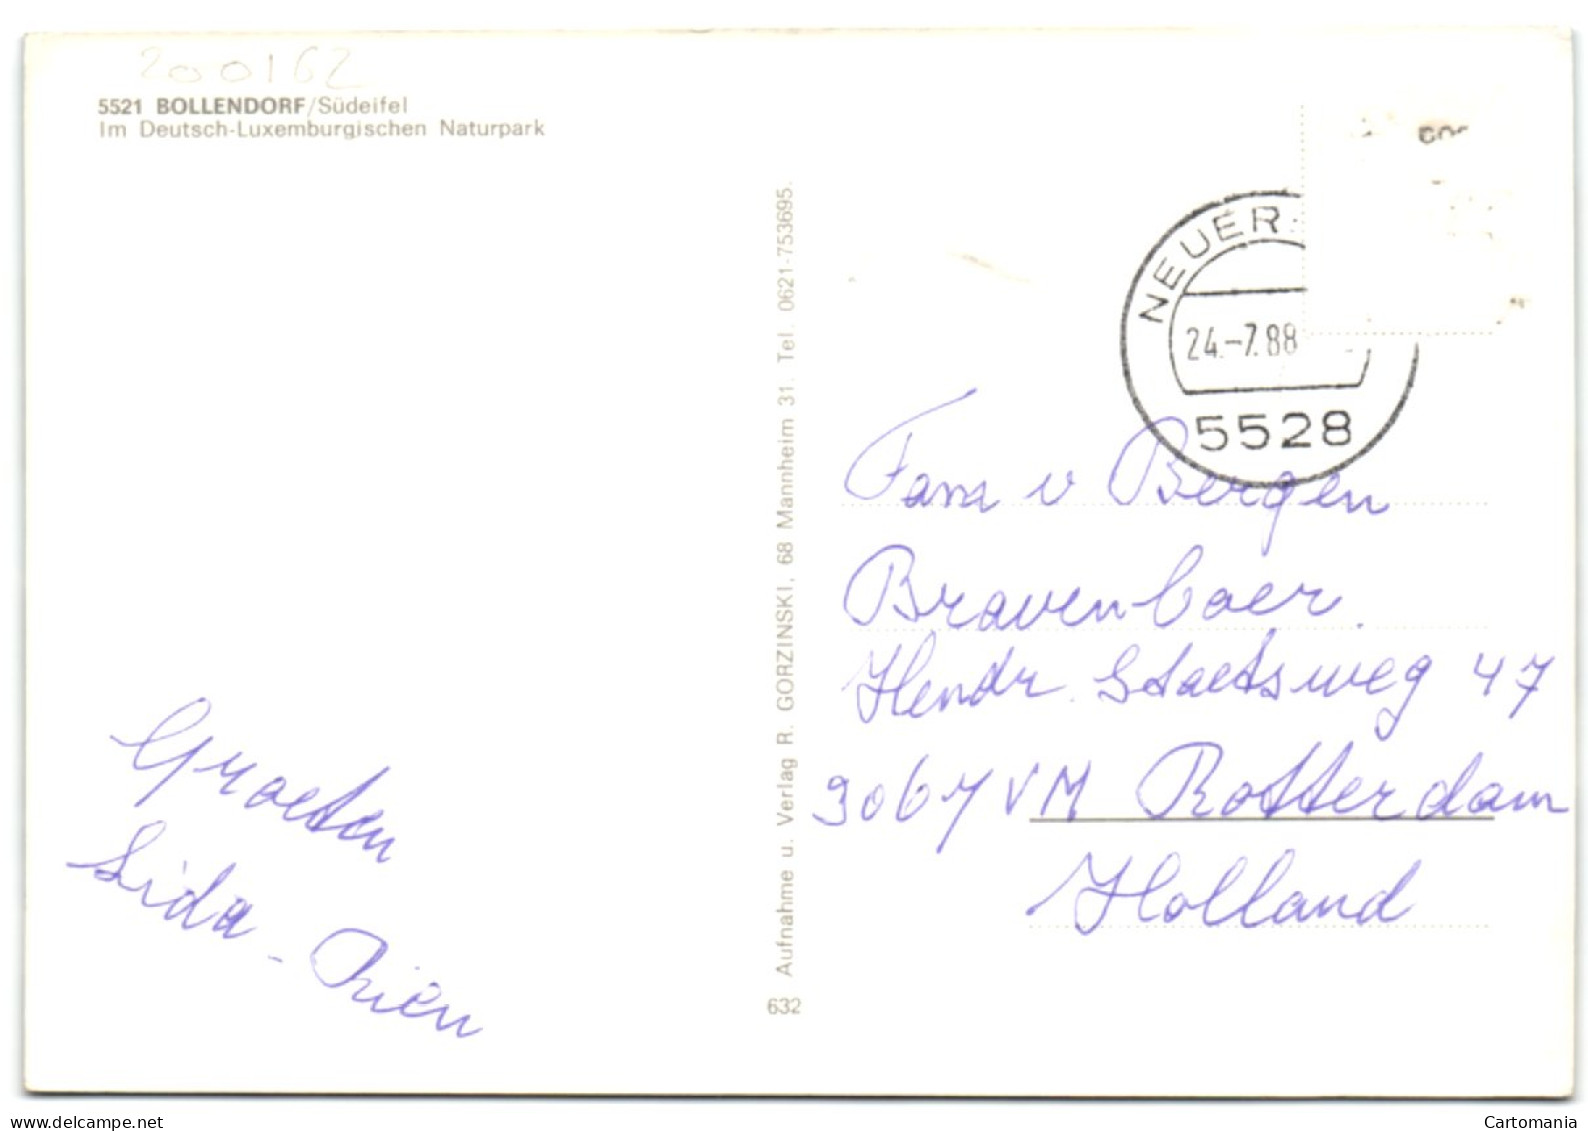 200162
5521 BOLLENDORF/Südeifel
Im Deutsch-Luxemburgischen Naturpark
Groeten
Lida - Riën
Aufnahme u. Verlag R. GORZINSKI, 68 Mannheim 31. Tel. 0621-753695.
632
NEUER
24.-7.88
5528
Fam v Bergen
Bravenboer.
Hendr. Staetsweg 47
3067 VM Rotterdam
Holland
www.delcampe.net
Cartomania